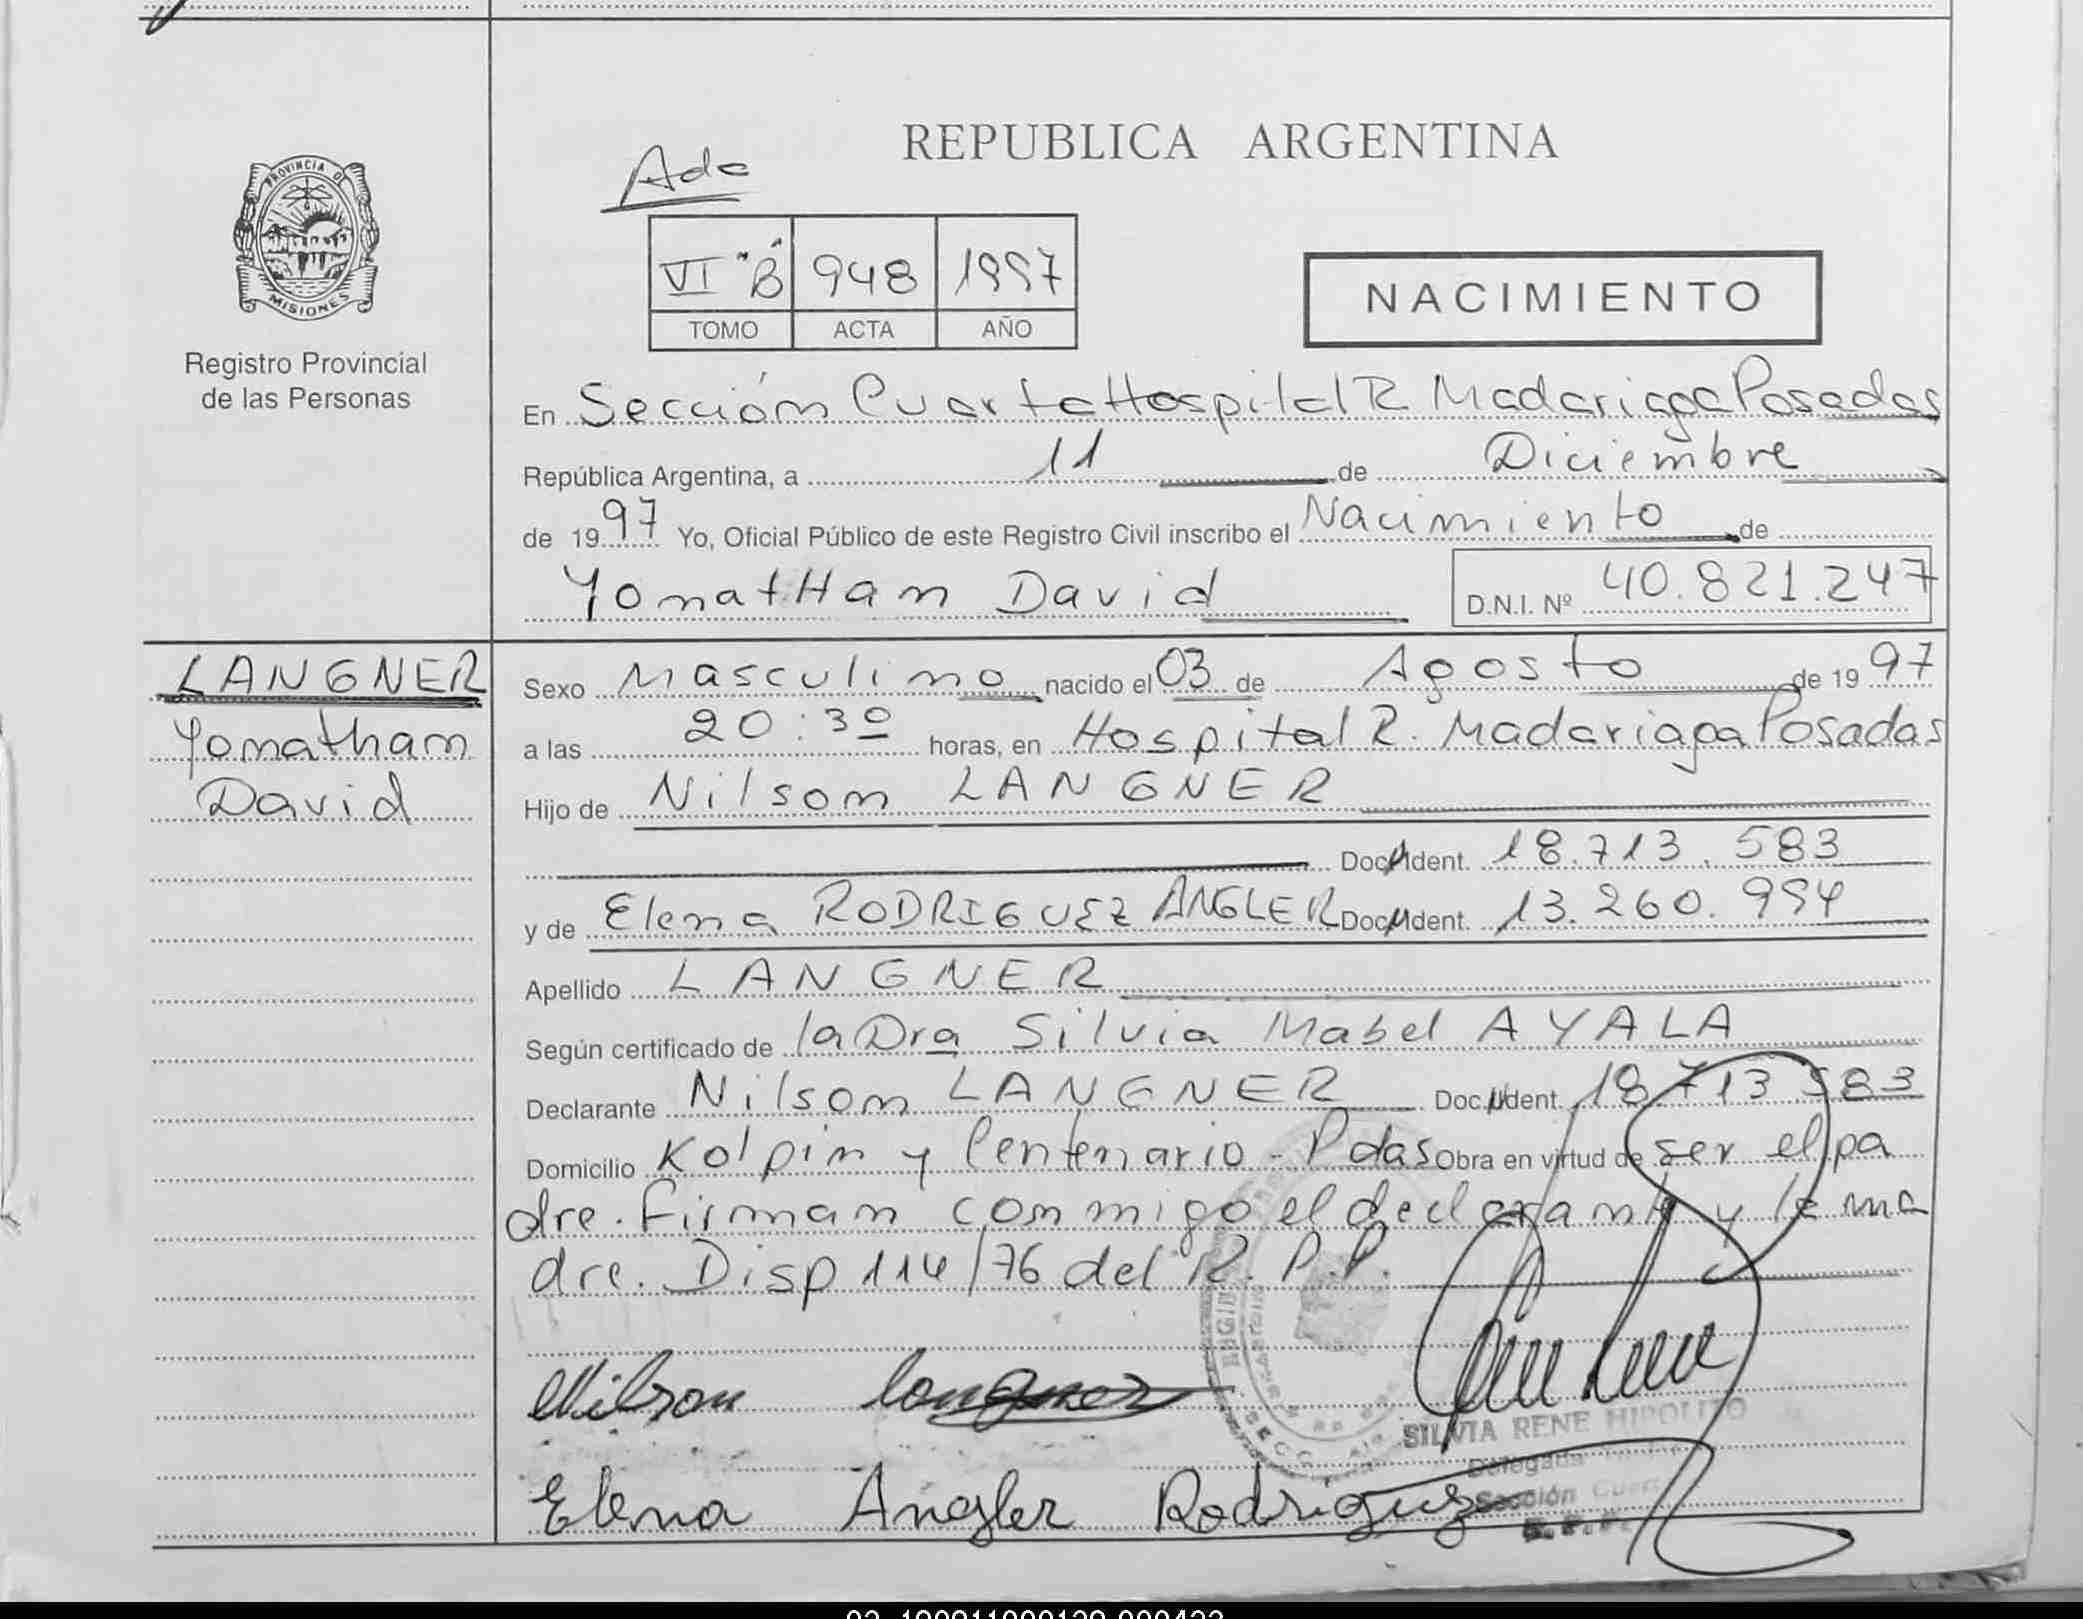 REPUBLICA ARGENTINA
Adc
PROVINCIA D
MISIONES
Registro Provincial
de las Personas
VI "B" 948 1997
TOMO ACTA AÑO
NACIMIENTO
En Sección Cuarta Hospital R Madariaga Posadas
República Argentina, a 11 de Diciembre
de 1997 Yo, Oficial Público de este Registro Civil inscribo el Nacimiento de
YonatHan David D.N.I. Nº 40.821.247
LANGNER
Yonathan
David
Sexo Masculino nacido el 03 de Agosto de 1997
a las 20:30 horas, en Hospital R. Madariaga Posadas
Hijo de Nilson LANGNER
Doc. Ident. 18.713.583
y de Elena RODRIGUEZ ANGLER Doc. Ident. 13.260.994
Apellido LANGNER
Según certificado de la Dra Silvia Mabel AYALA
Declarante Nilson LANGNER Doc. Ident. 18713583
Domicilio Kolpin y Centenario - Pdas Obra en virtud de ser el pa
dre. Firman conmigo el declarante y la ma
dre. Disp 114/76 del R. P. P.
Nilson Langner
SILVIA RENE HIPOLITO
Delegada
Sección
Elena Angler Rodriguez